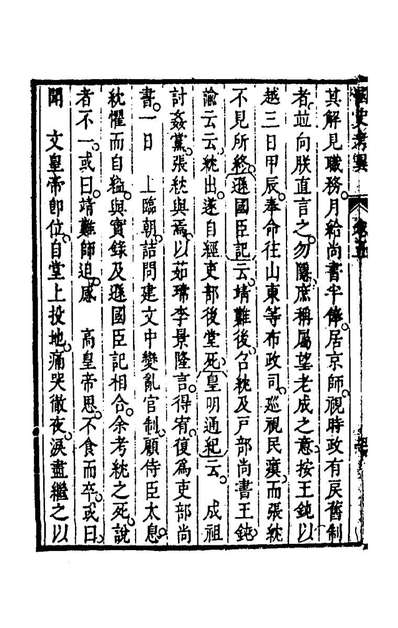 其解見職務月給尚書半俸居京師視時政有戾舊制
者竝向朕直言之勿隱庶稱屬望老成之意按王鈍以
越三日甲辰奉命往山東等布政司巡視民瘼而張紞
不見所終遜國臣記云靖難後召紞及戸部尚書王鈍
諭云云紞出遂自經吏部後堂死皇明通紀云　成祖
討姦黨張紞與焉以茹瑺李景隆言得宥復爲吏部尚
書一日　上臨朝詰問建文中變亂官制顧侍臣太息
紞懼而自縊與實錄及遜國臣記相合余考紞之死說
者不一或曰靖難師迫感　高皇帝恩不食而卒或曰
聞　文皇帝卽位自堂上投地痛哭徹夜淚盡繼之以
國史考異